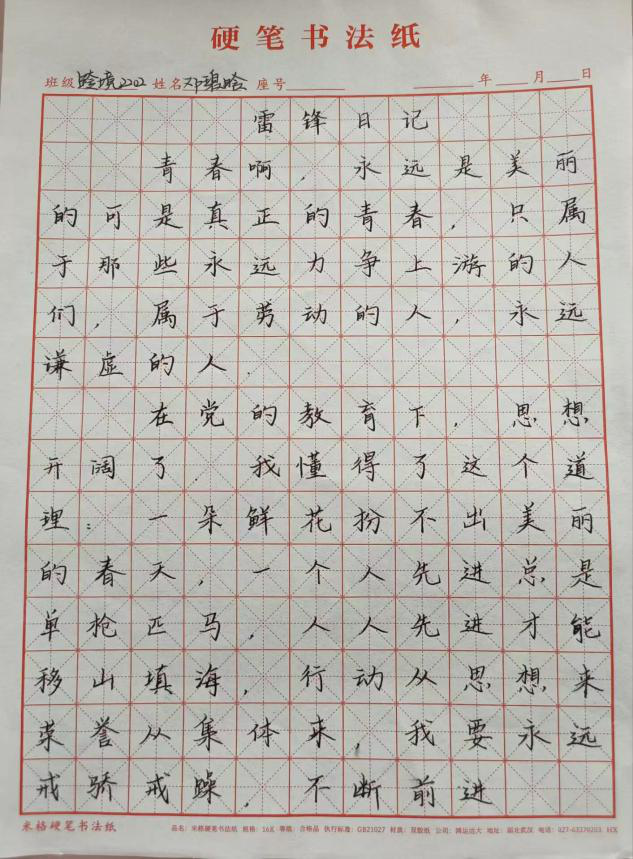 硬笔书法纸
班级 跨境2202 姓名 邓碧晗 座号 年 月 日
雷锋日记
青春啊，永远是美丽
的可是真正的青春，只属
于那些永远力争上游的人
们，属于劳动的人，永远
谦虚的人.
在党的教育下，思想
开阔了，我懂得了这个道
理：一朵鲜花扮不出美丽
的春天，一个人先进总是
单枪匹马，人人先进才能
移山填海，行动从思想来
荣誉从集体来，我要永远
戒骄戒躁，不断前进
米格硬笔书法纸 品名：米格硬笔书法纸 规格：16K 等级：合格品 执行标准：GB21027 材质：双胶纸 公司：鸿运远大 地址：湖北武汉 电话：027-63379203 HX